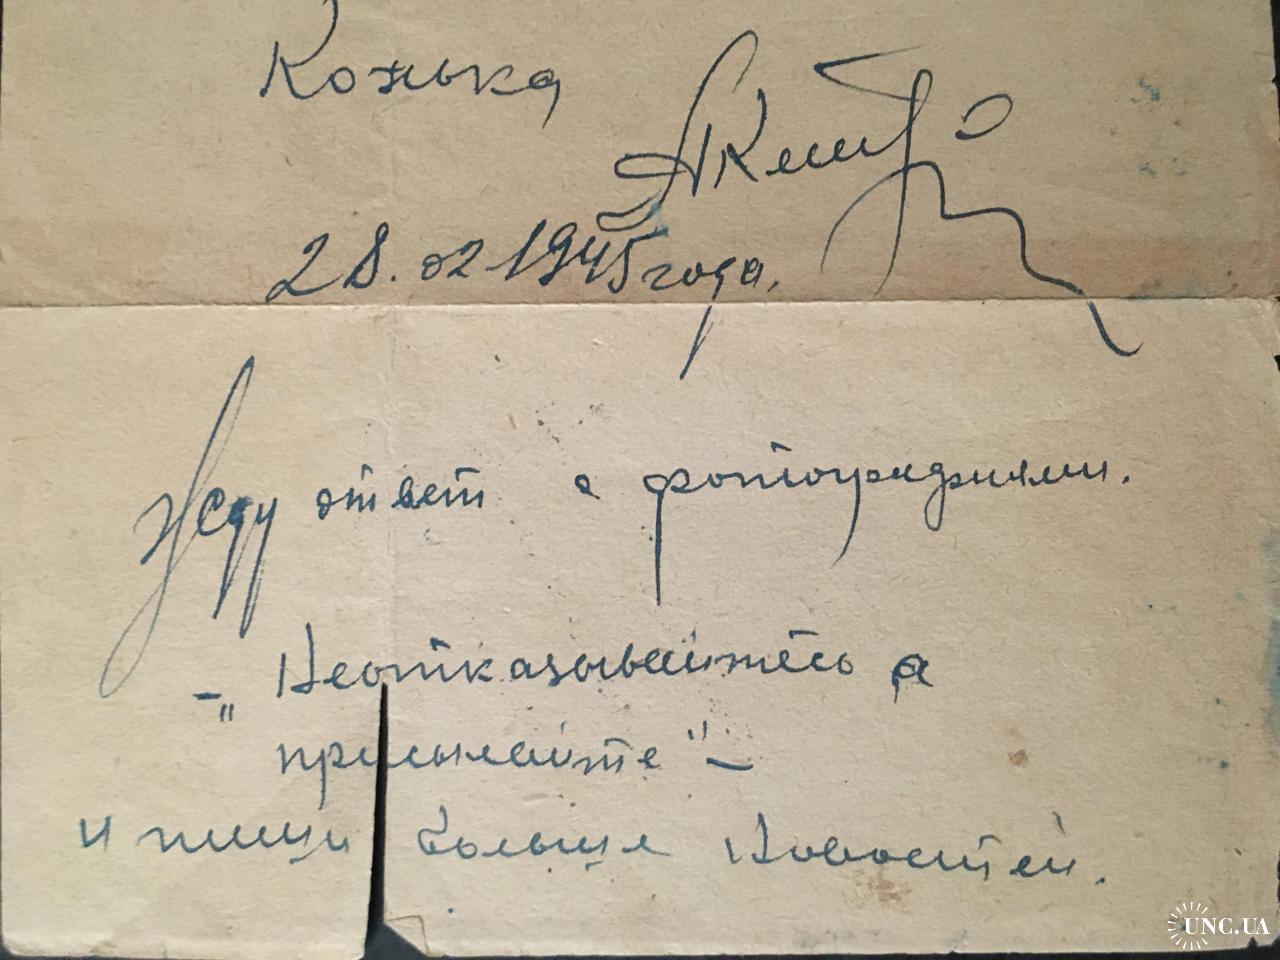 Конька
28.02 1945 года.
Жду ответ с фотографиями.
-„Неотказывайтесь а
присылайте"-
и пиши больше Новостей.
UNC.UA